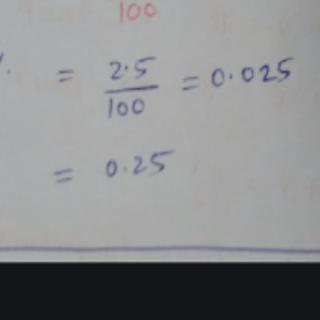 100
%. = 2.5/100 = 0.025
= 0.25